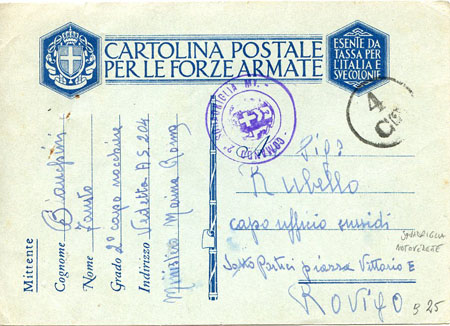 CARTOLINA POSTALE
PER LE FORZE ARMATE
ESENTE DA
TASSA PER
L'ITALIA E
SVE COLONIE
4
COMANDO 2ª SQVADRIGLIA
Mittente
Cognome Bianchini
Nome Fausto
Grado 2º capo nocchiere
Indirizzo Vedetta A S 204
Ministero Marina Roma
Sig.
Rubello
capo ufficio sussidi
Sotto Portici piazza Vittorio E
Rovigo
SQUADRIGLIA
MOTOVEDETTE
25